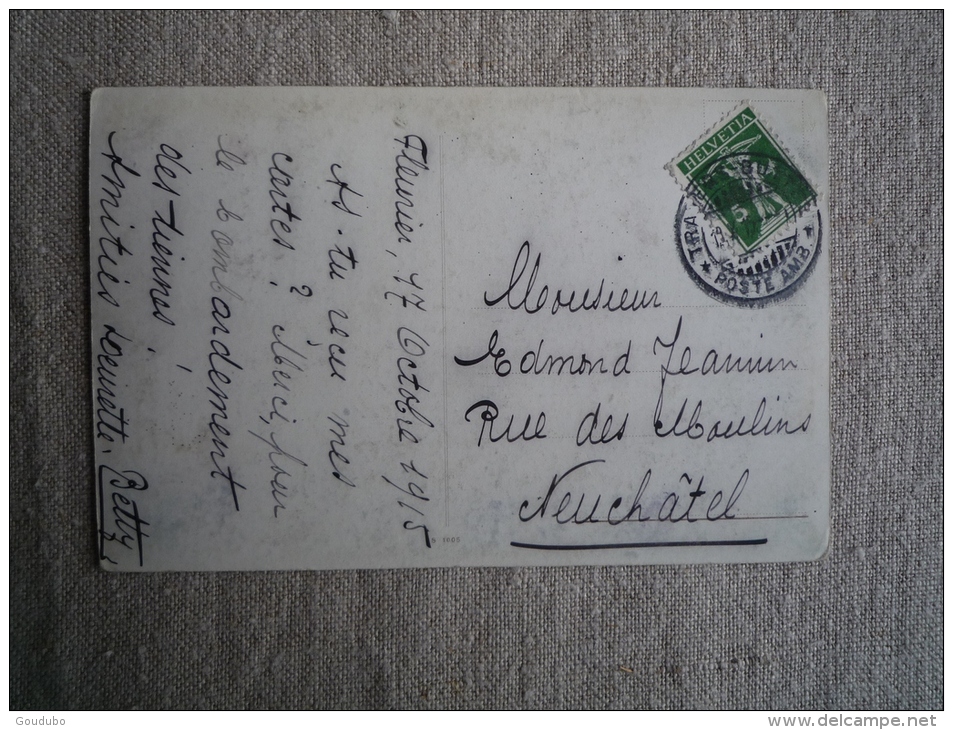 Fleurier, 17 Octobre 1915
As-tu reçu mes
cartes? Merci, pour
le bombardement
des tiennes!
Amitiés Betty.
HELVETIA
5
POSTE AMB.
Monsieur
Edmond Jeannin
Rue des Moulins
Neuchâtel
Goudubo
www.delcampe.net